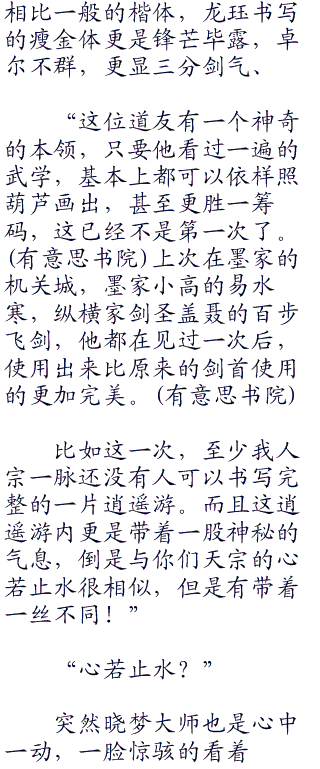 相比一般的楷体，龙珏书写
的瘦金体更是锋芒毕露，卓
尔不群，更显三分剑气、
“这位道友有一个神奇
的本领，只要他看过一遍的
武学，基本上都可以依样照
葫芦画出，甚至更胜一筹
码，这已经不是第一次了。
(有意思书院)上次在墨家的
机关城，墨家小高的易水
寒，纵横家剑圣盖聂的百步
飞剑，他都在见过一次后，
使用出来比原来的剑首使用
的更加完美。(有意思书院)
比如这一次，至少我人
宗一脉还没有人可以书写完
整的一片逍遥游。而且这逍
遥游内更是带着一股神秘的
气息，倒是与你们天宗的心
若止水很相似，但是有带着
一丝不同！”
“心若止水？”
突然晓梦大师也是心中
一动，一脸惊骇的看着